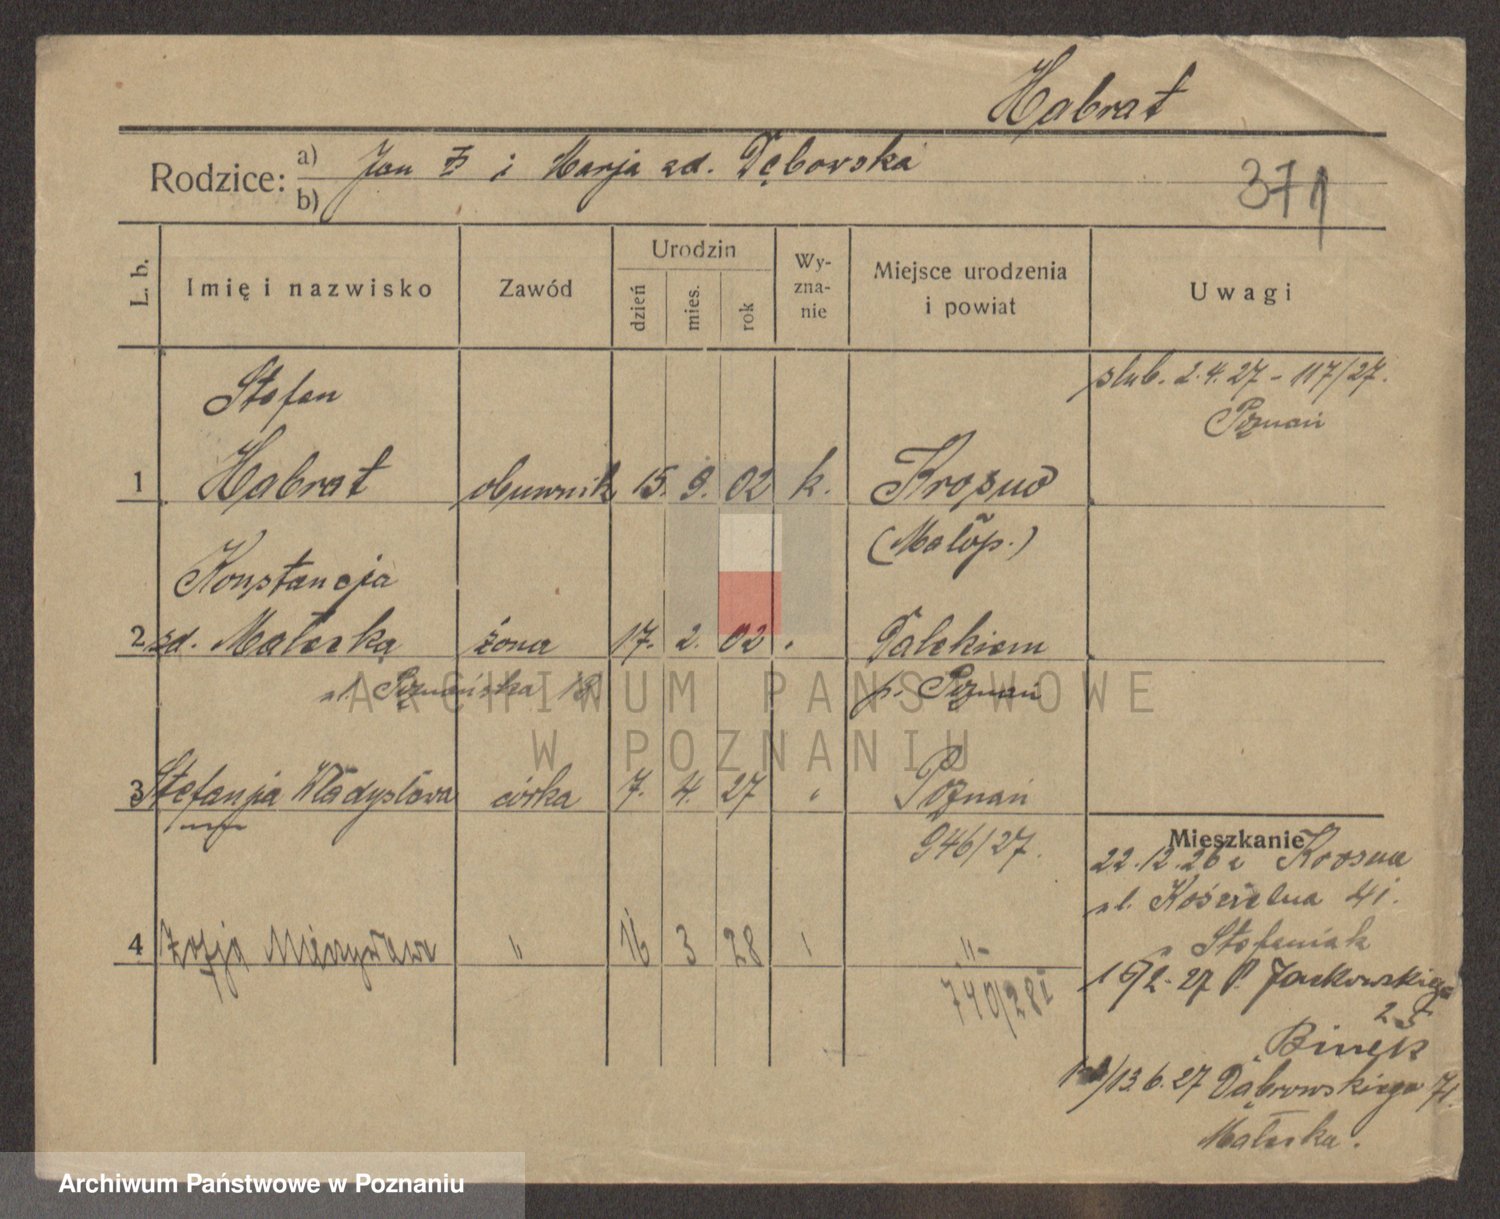 Habrat
Rodzice: a) Jan i Marja zd. Dębowska
b)
371
L. b. Imię i nazwisko Zawód Urodzin dzień mies. rok Wy-zna-nie Miejsce urodzenia i powiat Uwagi
ślub. 2.4.27 - 117/27.
Poznań
Stefan
1 Habrat obuwnik 15. 9. 02 k. Krosno
(Małop.)
Konstancja
2 zd. Małecka żona 17. 2. 02 Poznań
ul. Poznańska
p. Poznań
3 Stefanja Władysława córka 7. 4. 27 " Poznań
946/27.
4 Zofja " 16 3 28 " "-
740/28
Mieszkanie
22.12.26 z Krosna
ul. Kościelna 41.
Stefaniak
27 P. Jackowskiego
25
Binek
13.6.27 Dąbrowskiego 71.
Małecka.
ARCHIWUM PAŃSTWOWE
W POZNANIU
Archiwum Państwowe w Poznaniu